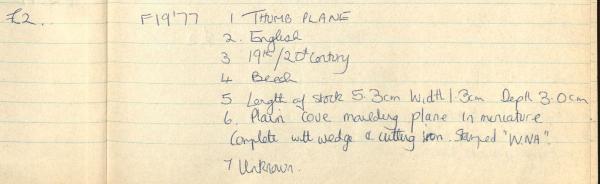 £2. F19'77 1 THUMB PLANE
2. English
3 19th/20th Century
4 Beech
5 Length of stock 5.3cm Width 1.3cm Depth 3.0cm
6. Plain cove moulding plane in miniature
Complete with wedge & cutting iron. Stamped "W.NA".
7 Unknown.